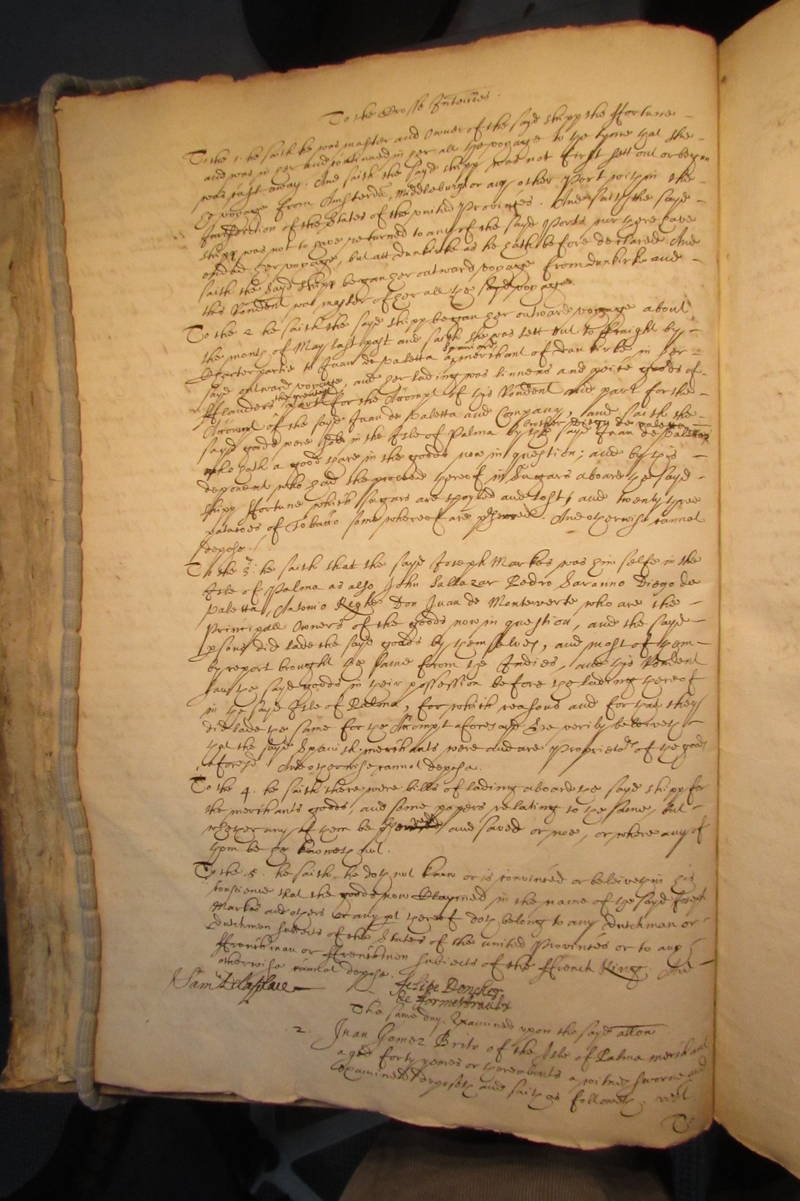 To the Crosse Interries
To the 1. he saith he was master and Owner of the sayd shipp the Fortune
and was in her and continued in her all the voyage to the tyme that she
was cast away. And saith the sayd shipp did not first sett out or began
voyage from Amsterdã, Middleburgh or any other Port within the
Jurisdiction of the States of the united Provinces. And saith the sayd
shipp was not to have returned to any of the sayd Ports nor there have
ended her voyage, but att dunkirke as he hath before declared And
saith the sayd shipp began her outward voyage from dunkirke and
this Rendent was master of her all the sayd voyage
To the 2 he saith the sayd shipp began her outward voyage about
the moneth of May last past and saith she was lett out to fraight by
Charter partie to Juan de Valetta a Spaniard merchant of dunkirke in her
sayd outward voyage, and her lading was linnens and other goods of
Flanders the greater parte for the Accompt of this Rendent and part for the
Accompt of the sayd Juan de Valetta and Company, and saith the
sayd goods were sold in the Isle of Palma by the sayd Juan de Valetta
brother Diego de Valetta
who hath a good share in the goods now in question; and by this
deponent who had the proceed thereof in Sugars aboard the sayd
shipp Fortune which sugars are spoyled and lost, and twenty three
of Tobacco some whereof are And otherwise cannot
depose
To the 3. he saith that the sayd Joseph Markes was him selfe in the
Isle of Palma as also John Sallazar Pedro Diego de
Valetta, Antonio Don Juan de Monteverte who are the
Principall Owners of the goods now in question, and the sayd
psons did lade the sayd goods by them selves, and most of them
by report brought the same from the Indies, and this Rendent
saw the sayd goods in their possession before the lading thereof
in the sayd Isle of Palma, for which reasons and for that they
did lade the same for the Accompt aforesayd hee verily beleeveth
that the sayd Spanish merchants were and are Proprietors of the goods
aforesd And otherwise cannot depose.
To the 4. he saith there were bills of lading aboard the sayd shipp for
the merchants goods, and some papers relating to the same, but
whether any of them be and saved or noe, or where any of
them be he knoweth not.
To the .5. he saith he doth not know or is convinced or beleiveth in his
conscience that the goods now Claymed in the name of the sayd Joseph
Markes and others or any pt thereof doth belong to any Dutchman or
Dutchmen subiects of the States of the united Provinces or to any
Frenchman or Frenchmen subiects of the French King And
otherwise cannot depose.
Saml: Delaplace
The same day. Examined upon the sayd allon
2. Juan Gomez Brito of the Isle of Palma merchant
aged forty yeares or thereabouts a witnes sworne and
examined deposeth and saith as followeth, vizt
To